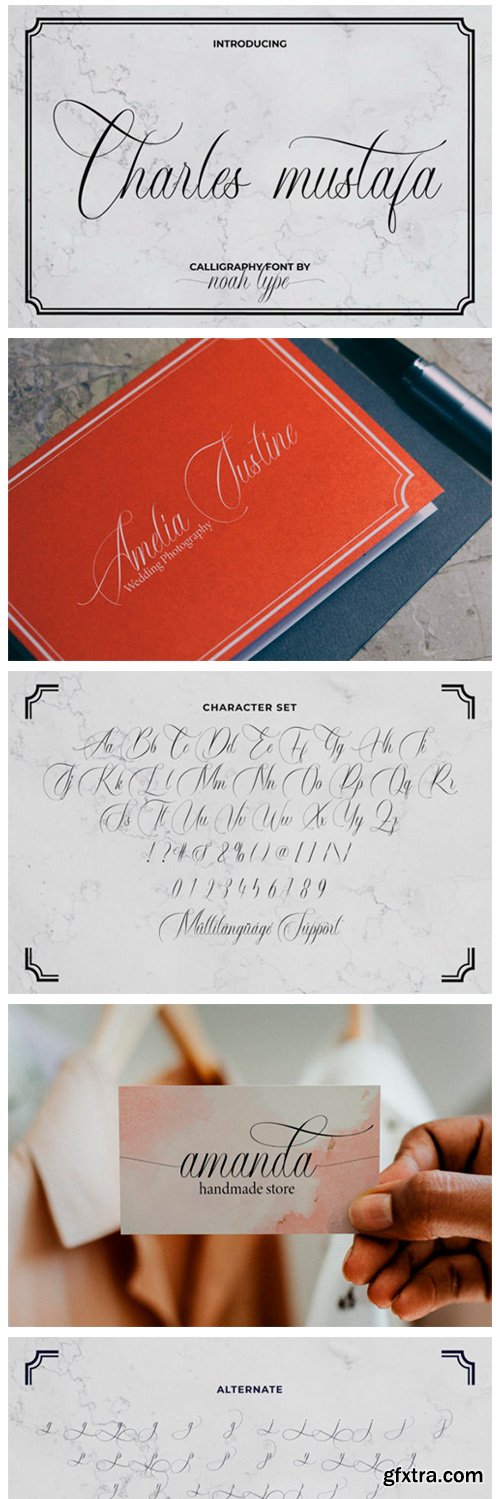 INTRODUCING
Charles mustafa
CALLIGRAPHY FONT BY
noah type
Amelia Justine
Wedding Photography
CHARACTER SET
Aa Bb Cc Dd Ee Ff Gg Hh Ii
Jj Kk Ll Mm Nn Oo Pp Qq Rr
Ss Tt Uu Vv Ww Xx Yy Zz
! ? # $ & % ( ) @ [ ] / \ |
0 1 2 3 4 5 6 7 8 9
Multilanguage Support
amanda
handmade store
ALTERNATE
gfxtra.com